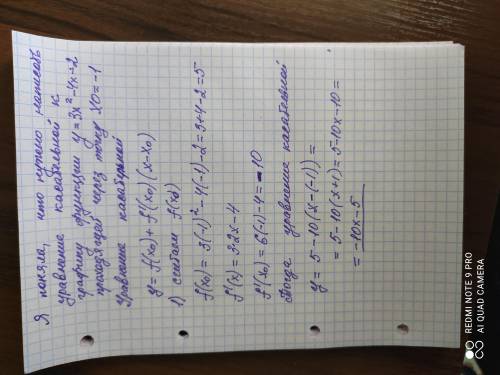 Я поняла, что нужно написать
уравнение касательной к
графику функции y = 3x² - 4x - 2
проходящей через точку x0 = -1
Уравнение касательной
y = f(x₀) + f'(x₀)(x - x₀)
1) считаем f(x₀)
f(x₀) = 3(-1)² - 4(-1) - 2 = 3 + 4 - 2 = 5
f'(x) = 3·2x - 4
f'(x₀) = 6(-1) - 4 = -10
тогда уравнение касательной
y = 5 - 10(x - (-1)) =
= 5 - 10(x + 1) = 5 - 10x - 10 =
= -10x - 5
REDMI NOTE 9 PRO
AI QUAD CAMERA